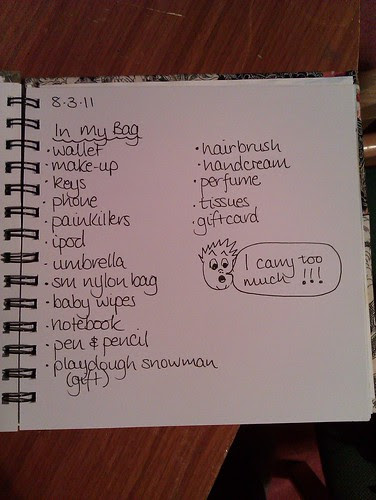 8.3.11
In my Bag
· wallet
· make-up
· keys
· phone
· painkillers
· ipod
· umbrella
· sm nylon bag
· baby wipes
· notebook
· pen & pencil
· playdough snowman
(gift)
· hairbrush
· handcream
· perfume
· tissues
· giftcard
I carry too
much !!!